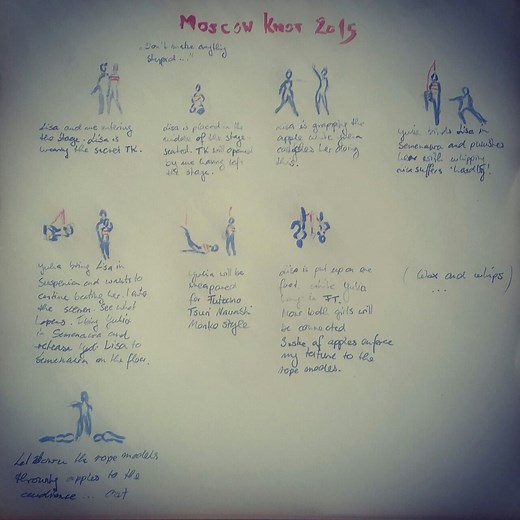 Moscow Knot 2015
"Don't make anything
stupid..."
Lisa and me entering
the stage. Lisa is
wearing the secret TK.
Lisa is placed in the
middle of the stage
seated. TK still opened
by me having left
the stage.
Lisa is grapping the
apple while Yulia
catches her doing
this.
Yulia binds Lisa in
Semenawa and punishes
her with whipping
Lisa suffers 'hardly'.
Yulia bring Lisa in
Suspension and wants to
continue beating her. I enter
the scene. See what
happens. Tying Yulia
in Semenawa and
release Lisa to
Semenawa on the floor.
Yulia will be
prepared
for Futomo
Tsuri Nawashi
Style
Lisa is put up on one
foot while Yulia
hangs in FT.
Hair both girls will
be connected
of apples enforce
my torture to the
rope models.
(Wax and whips)
...
Let down the rope models
throwing apples to the
audience ... Out